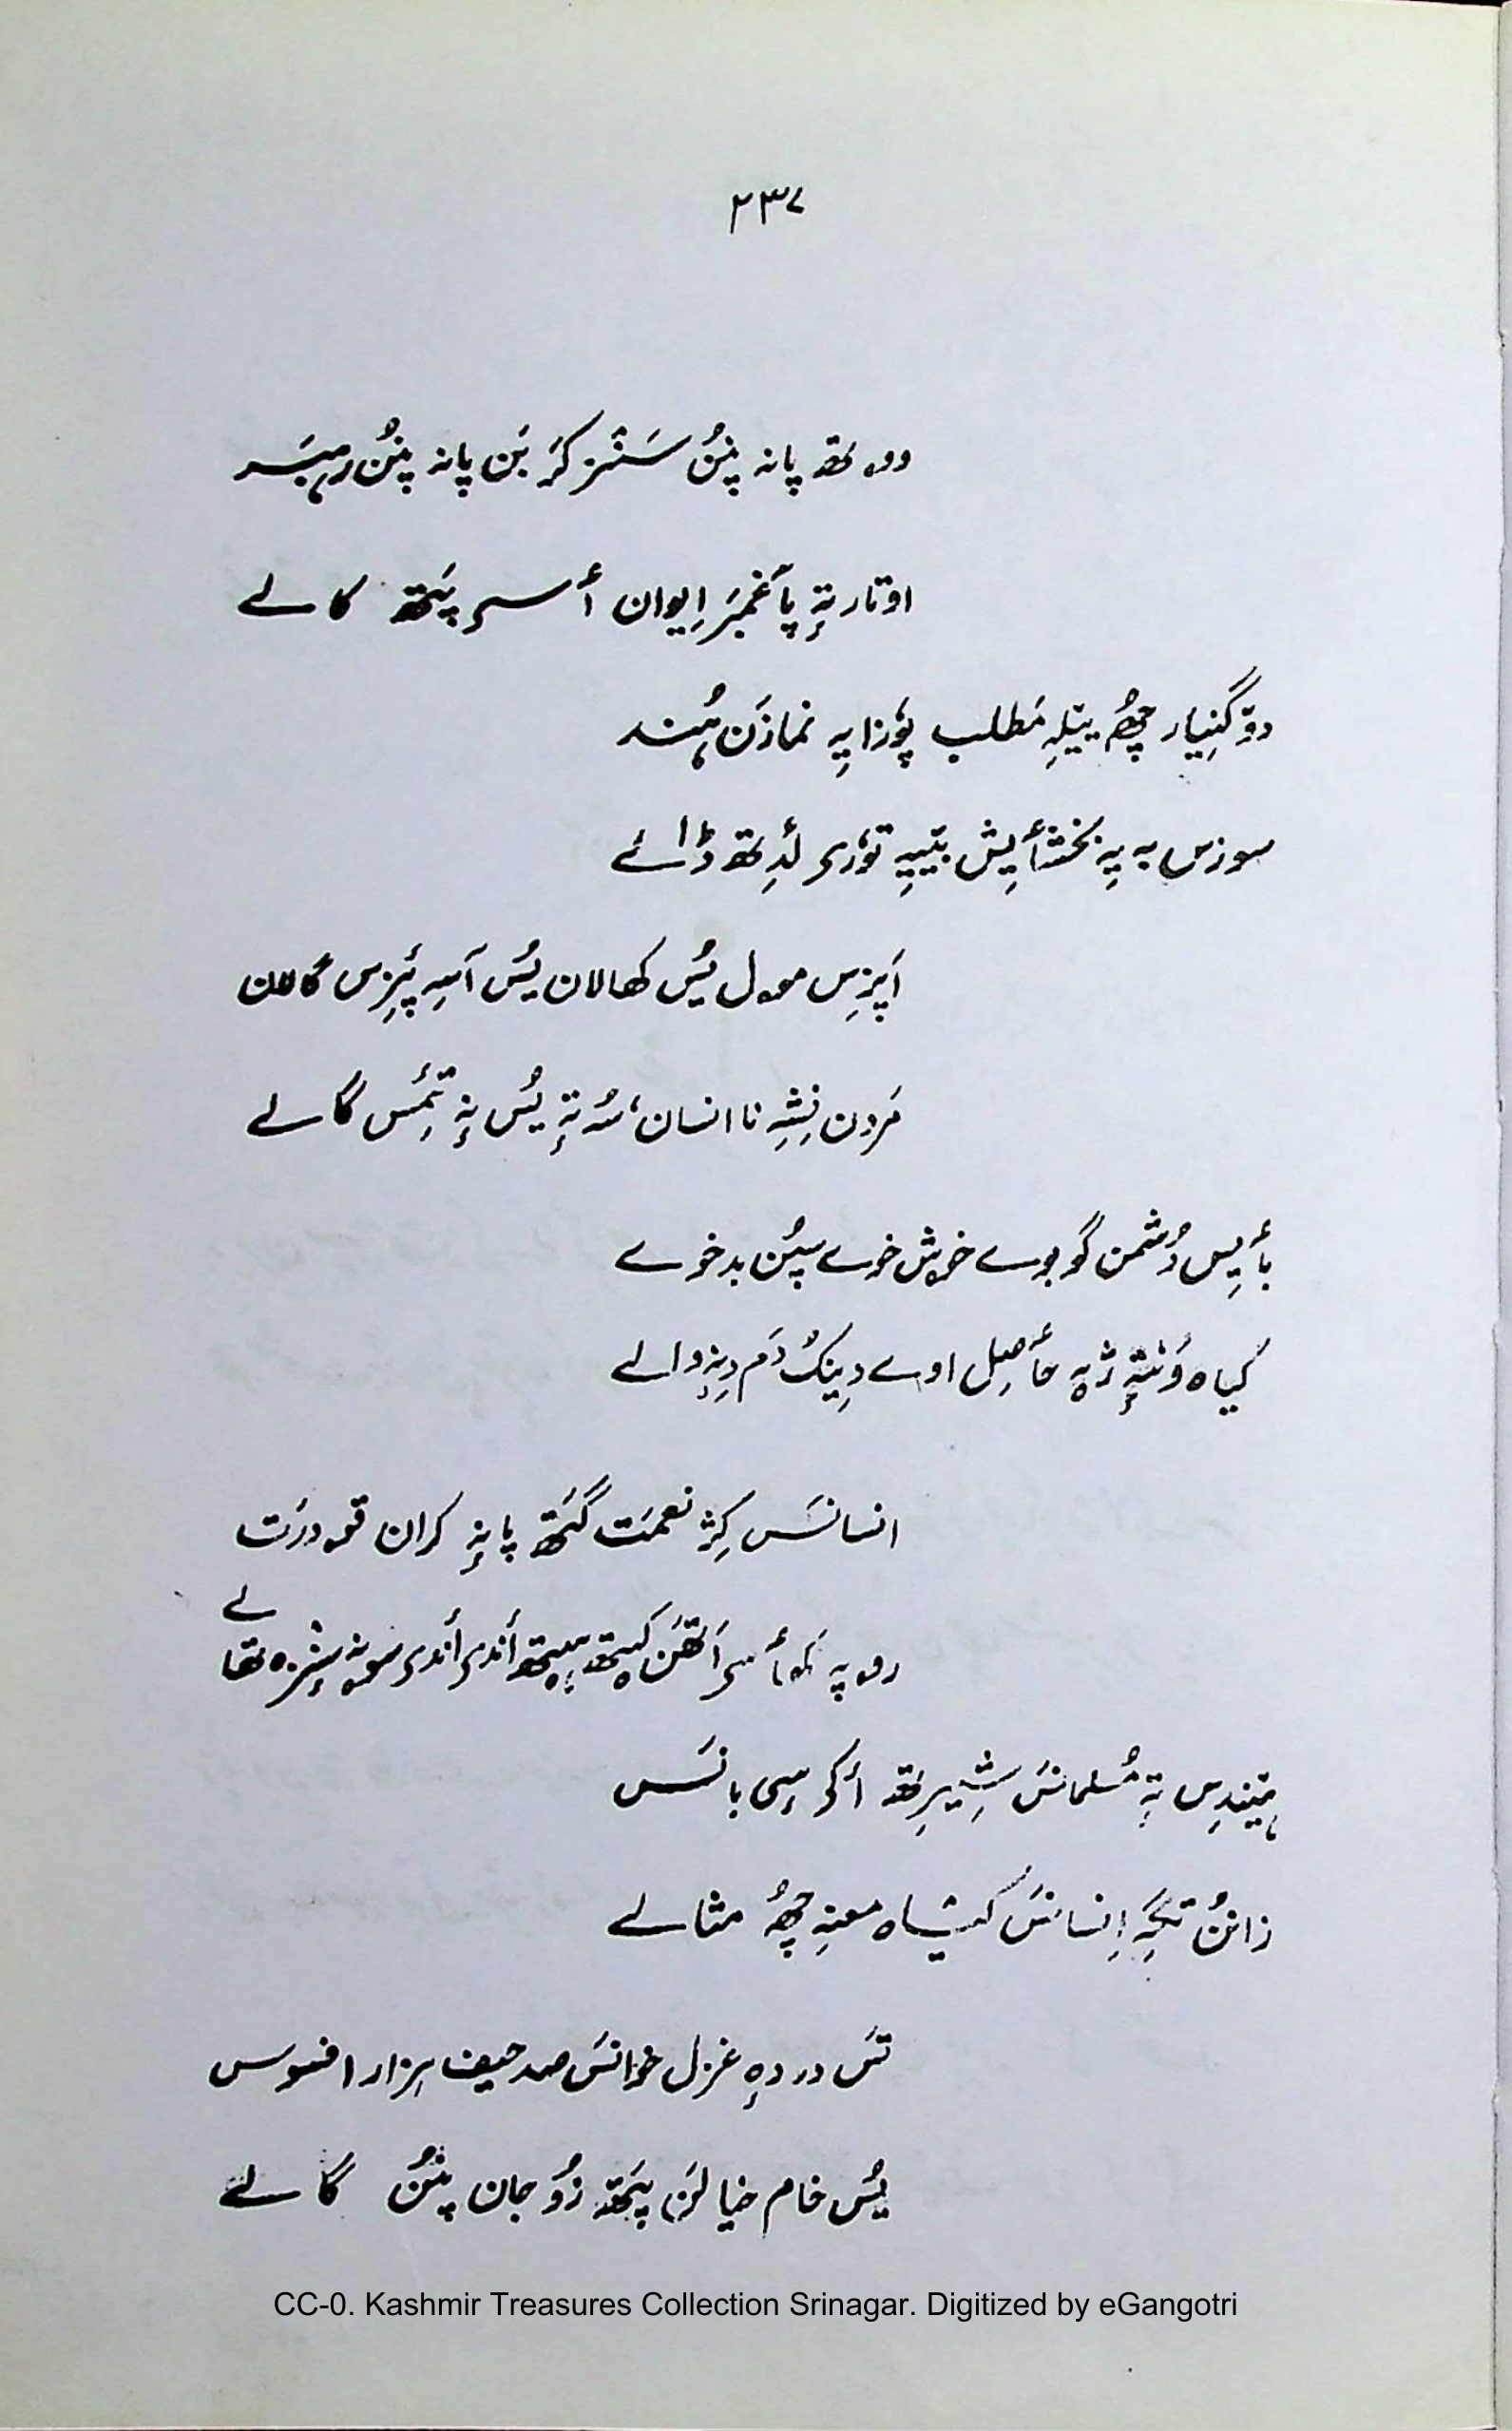 ۲۳۷
ووتھ پانہ پنُن سَنٛز کَر بَن پانہ پنُن رہبَر
اوتار تہٕ پأغمبَر اِیوان أسۍ پَتھ کالے
دۄگنِیار چھُ ییٚلہِ مَطلب پوٗزایہِ نمازَن ہُند
سوزس بہ یہِ بخشأیِش بییہِ توٗرۍ لٔدِتھ ڈالے
اَپزِس موول یُس کھالان یُس آسہِ پٔزِس گالان
مَردن نِشہِ نا انسان، سُہ تہٕ یُس نہٕ تٔمِس گالے
بأیِس دُشمن گوبوے خوش خوے سپُن بدخوے
کیاہ وَنتہٕ ژہٕ حأصِل اوے دِینُک دَم دِنہٕ والے
انسانَس کِژ نعمَت گَتھ پانہٕ کران قۄدرَت
روپہ کھأسۍ اَتھَن کیٚتھ ہیٚتھ أندۍ أندۍ سۄنہٕ سٕنٛزہ تھالے
ہیٚندِس تہٕ مُسلمانَس شِیرِتھ أکۍ سٕی بانَس
زانُن تگہِ اِنسانَس کیٚشاہ معنہِ چھُ مثالے
تَس دردہٕ غزل خوانَس صد حیف ہزار افسوس
یُس خام خیالَن پَتھ زُو جان پنُن گالے
CC-0. Kashmir Treasures Collection Srinagar. Digitized by eGangotri